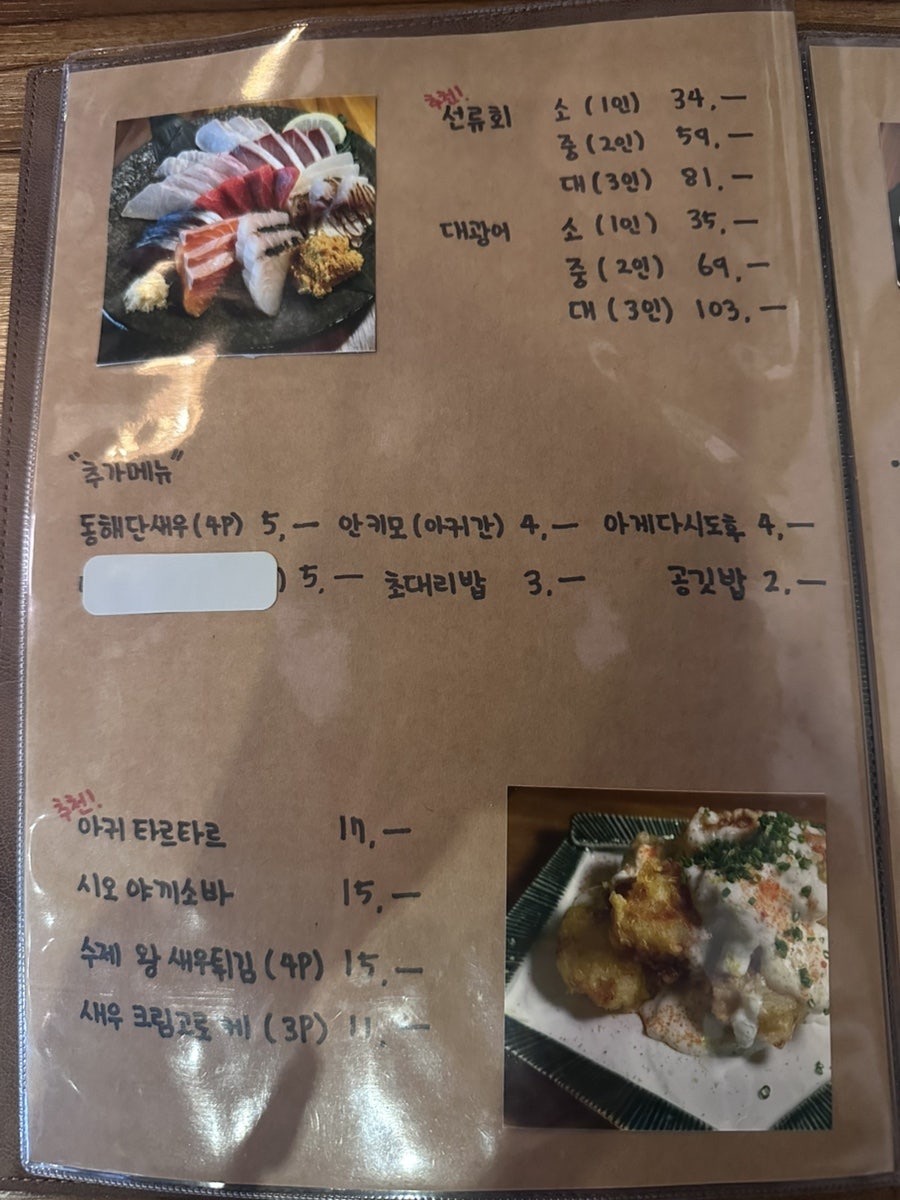 추천!
선류회 소 (1인) 34.—
중 (2인) 59.—
대 (3인) 81.—
대광어 소 (1인) 35.—
중 (2인) 69.—
대 (3인) 103.—
"추가메뉴"
동해단새우(4P) 5.— 안키모(아귀간) 4.— 아게다시도후 4.—
) 5.— 초대리밥 3.— 공깃밥 2.—
추천!
아귀 타르타르 17.—
시오 야끼소바 15.—
수제 왕 새우튀김 (4P) 15.—
새우 크림고로케 (3P) 11.—